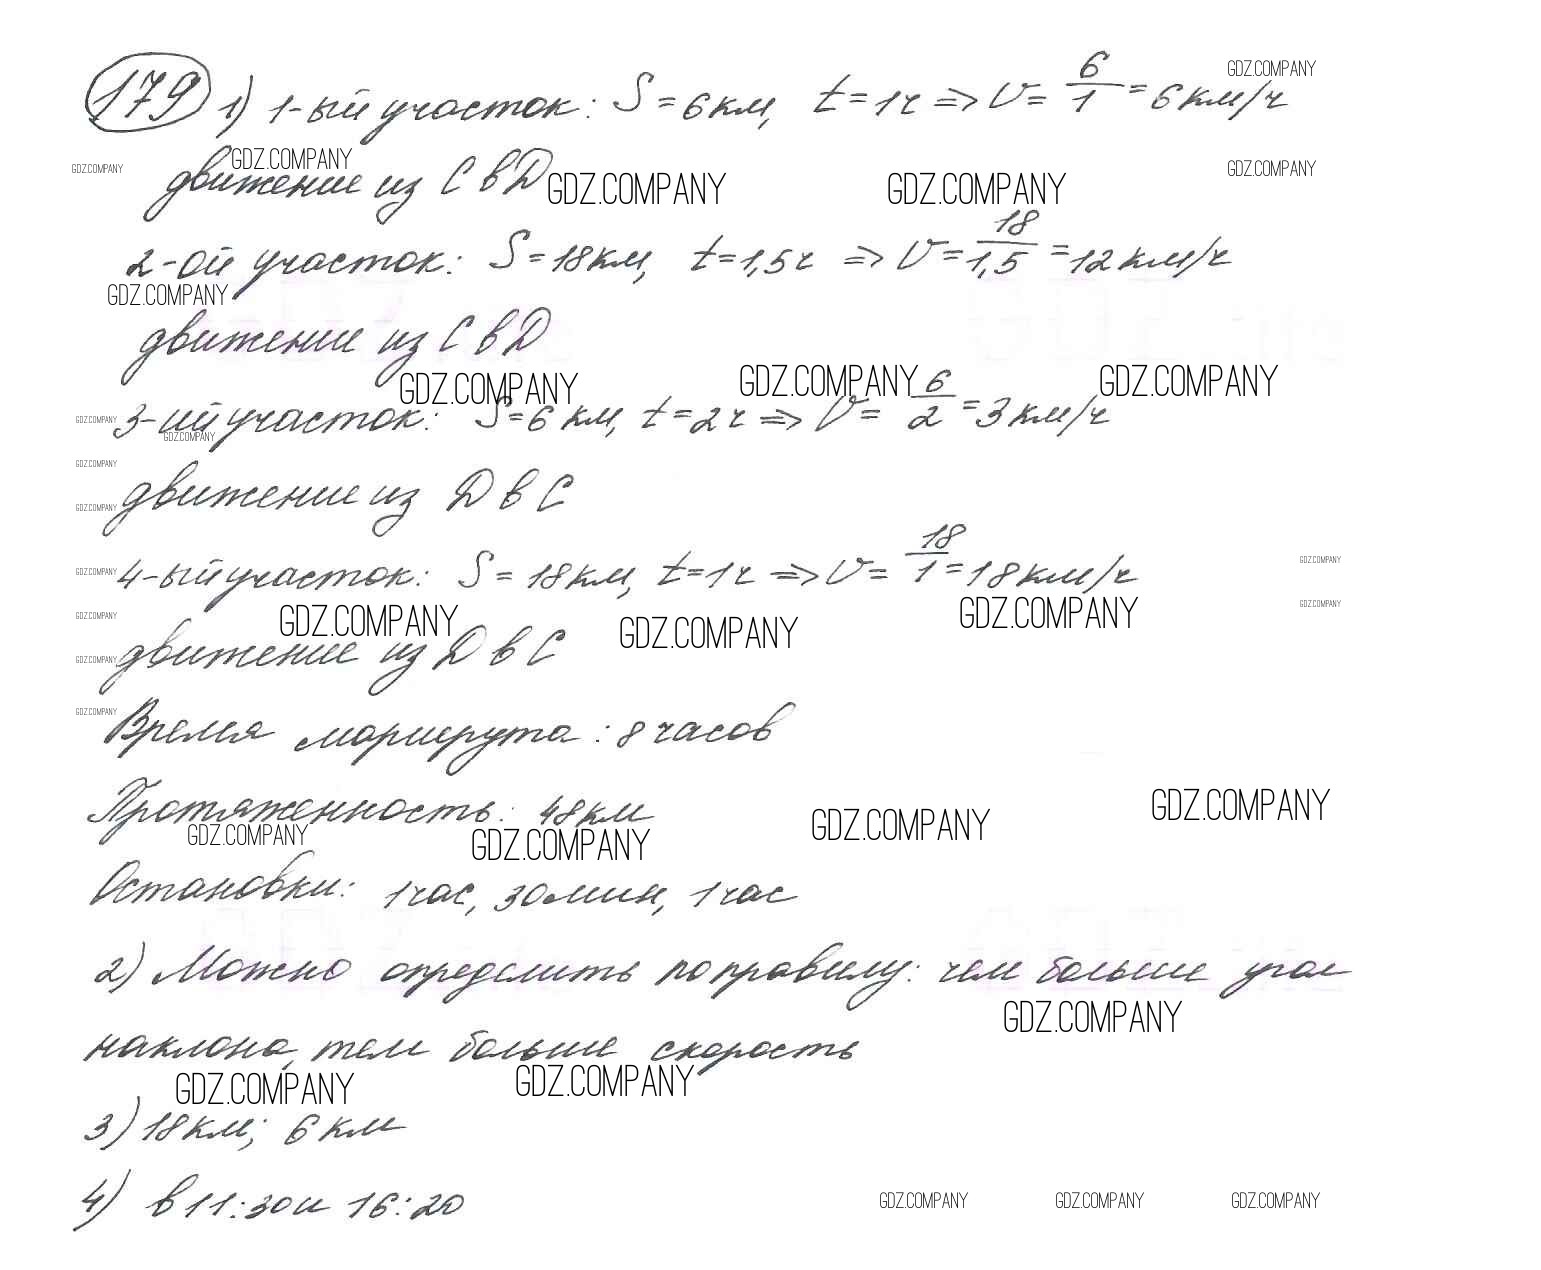 179 1) 1-ый участок: S = 6 км, t = 1ч => V = 6/1 = 6 км/ч
GDZ.COMPANY
движение из C в D
GDZ.COMPANY GDZ.COMPANY GDZ.COMPANY GDZ.COMPANY GDZ.COMPANY
2-ой участок: S = 18 км, t = 1,5ч => V = 18/1,5 = 12 км/ч
GDZ.COMPANY
движение из C в D
GDZ.COMPANY GDZ.COMPANY GDZ.COMPANY
3-ий участок: S = 6 км, t = 2ч => V = 6/2 = 3 км/ч
GDZ.COMPANY GDZ.COMPANY
GDZ.COMPANY
движение из D в C
GDZ.COMPANY
4-ый участок: S = 18 км, t = 1ч => V = 18/1 = 18 км/ч
GDZ.COMPANY GDZ.COMPANY
GDZ.COMPANY GDZ.COMPANY GDZ.COMPANY GDZ.COMPANY GDZ.COMPANY
движение из D в C
GDZ.COMPANY
GDZ.COMPANY
Время маршрута: 8 часов
Протяженность: 48 км
GDZ.COMPANY GDZ.COMPANY GDZ.COMPANY GDZ.COMPANY
Остановки: 1 час, 30 мин, 1 час
2) Можно определить по правилу: чем больше угол
GDZ.COMPANY
наклона, тем больше скорость
GDZ.COMPANY GDZ.COMPANY
3) 18 км; 6 км
4) в 11:30 и 16:20
GDZ.COMPANY GDZ.COMPANY GDZ.COMPANY